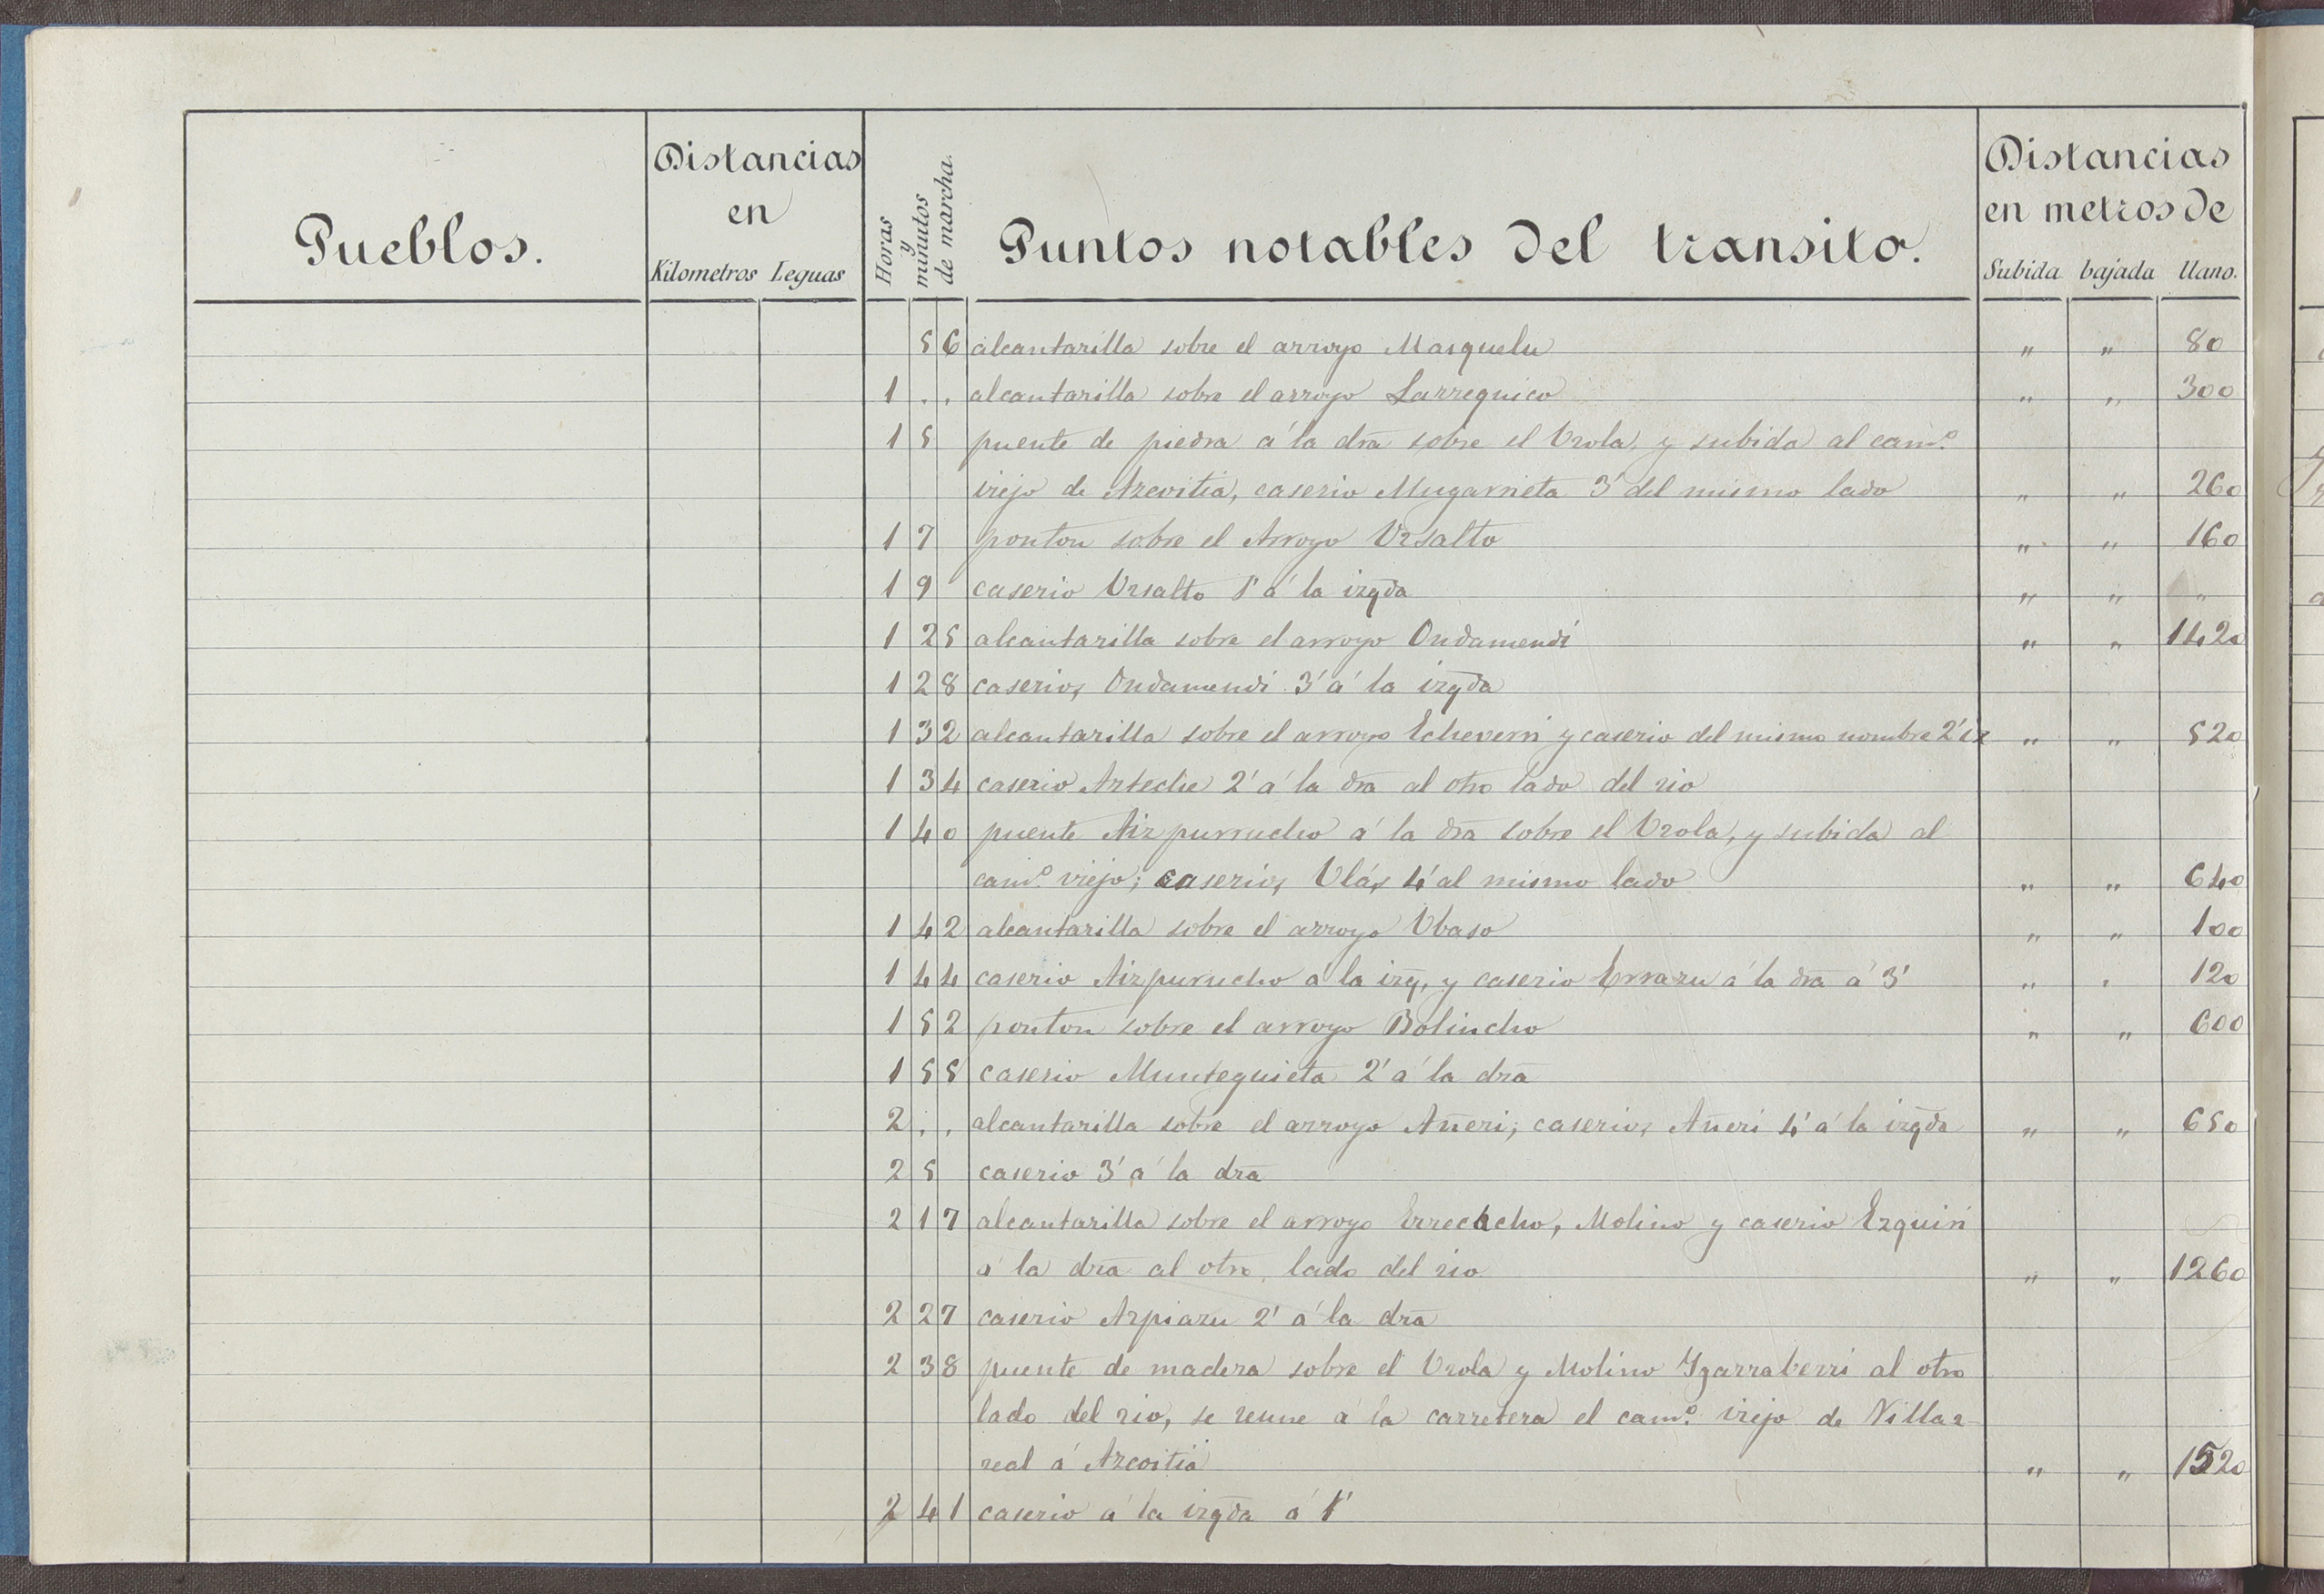 Pueblos.
Distancias
en
Kilometros Leguas
Horas
y
minutos
de marcha.
Puntos notables del transito.
Distancias
en metros de
Subida bajada llano.
56 alcantarilla sobre el arroyo Masquelu " " 80
1 . . alcantarilla sobre el arroyo Larrequico " " 300
1 5 puente de piedra á la dra sobre el Urola, y subida al camº
viejo de Azcoitia, caserio Mugarrieta 3' del mismo lado " " 260
1 7 ponton sobre el Arroyo Ursalto " " 160
1 9 caserio Ursalto 1' á la izqda " " "
1 25 alcantarilla sobre el arroyo Ondamendi " " 1420
1 28 caserios Ondamendi 3' á la izqda
1 32 alcantarilla sobre el arroyo Echeverri y caserio del mismo nombre 2' iz " " 520
1 34 caserio Arteche 2' á la dra al otro lado del rio
1 40 puente Aizpurrucho á la dra sobre el Urola, y subida al
camº viejo; caserios Ulás 4' al mismo lado " " 640
1 42 alcantarilla sobre el arroyo Ubaso " " 100
1 44 caserio Aizpurucho á la izq, y caserio Errazu á la dra á 3' " " 120
1 52 ponton sobre el arroyo Bolincho " " 600
1 55 caserio Munteguieta 2' á la dra
2 . . alcantarilla sobre el arroyo Añeri; caserios Añeri 4' á la izqda " " 650
2 5 caserio 3' á la dra
2 17 alcantarilla sobre el arroyo Errecacho, Molino y caserio Ezquiri
á la dra al otro lado del rio " " 1260
2 27 caserio Azpiazu 2' á la dra
2 38 puente de madera sobre el Urola y Molino Ygarraberri al otro
lado del rio, se reune á la carretera el camº viejo de Villar
real á Azcoitia " " 1520
2 41 caserio á la izqda á 1'